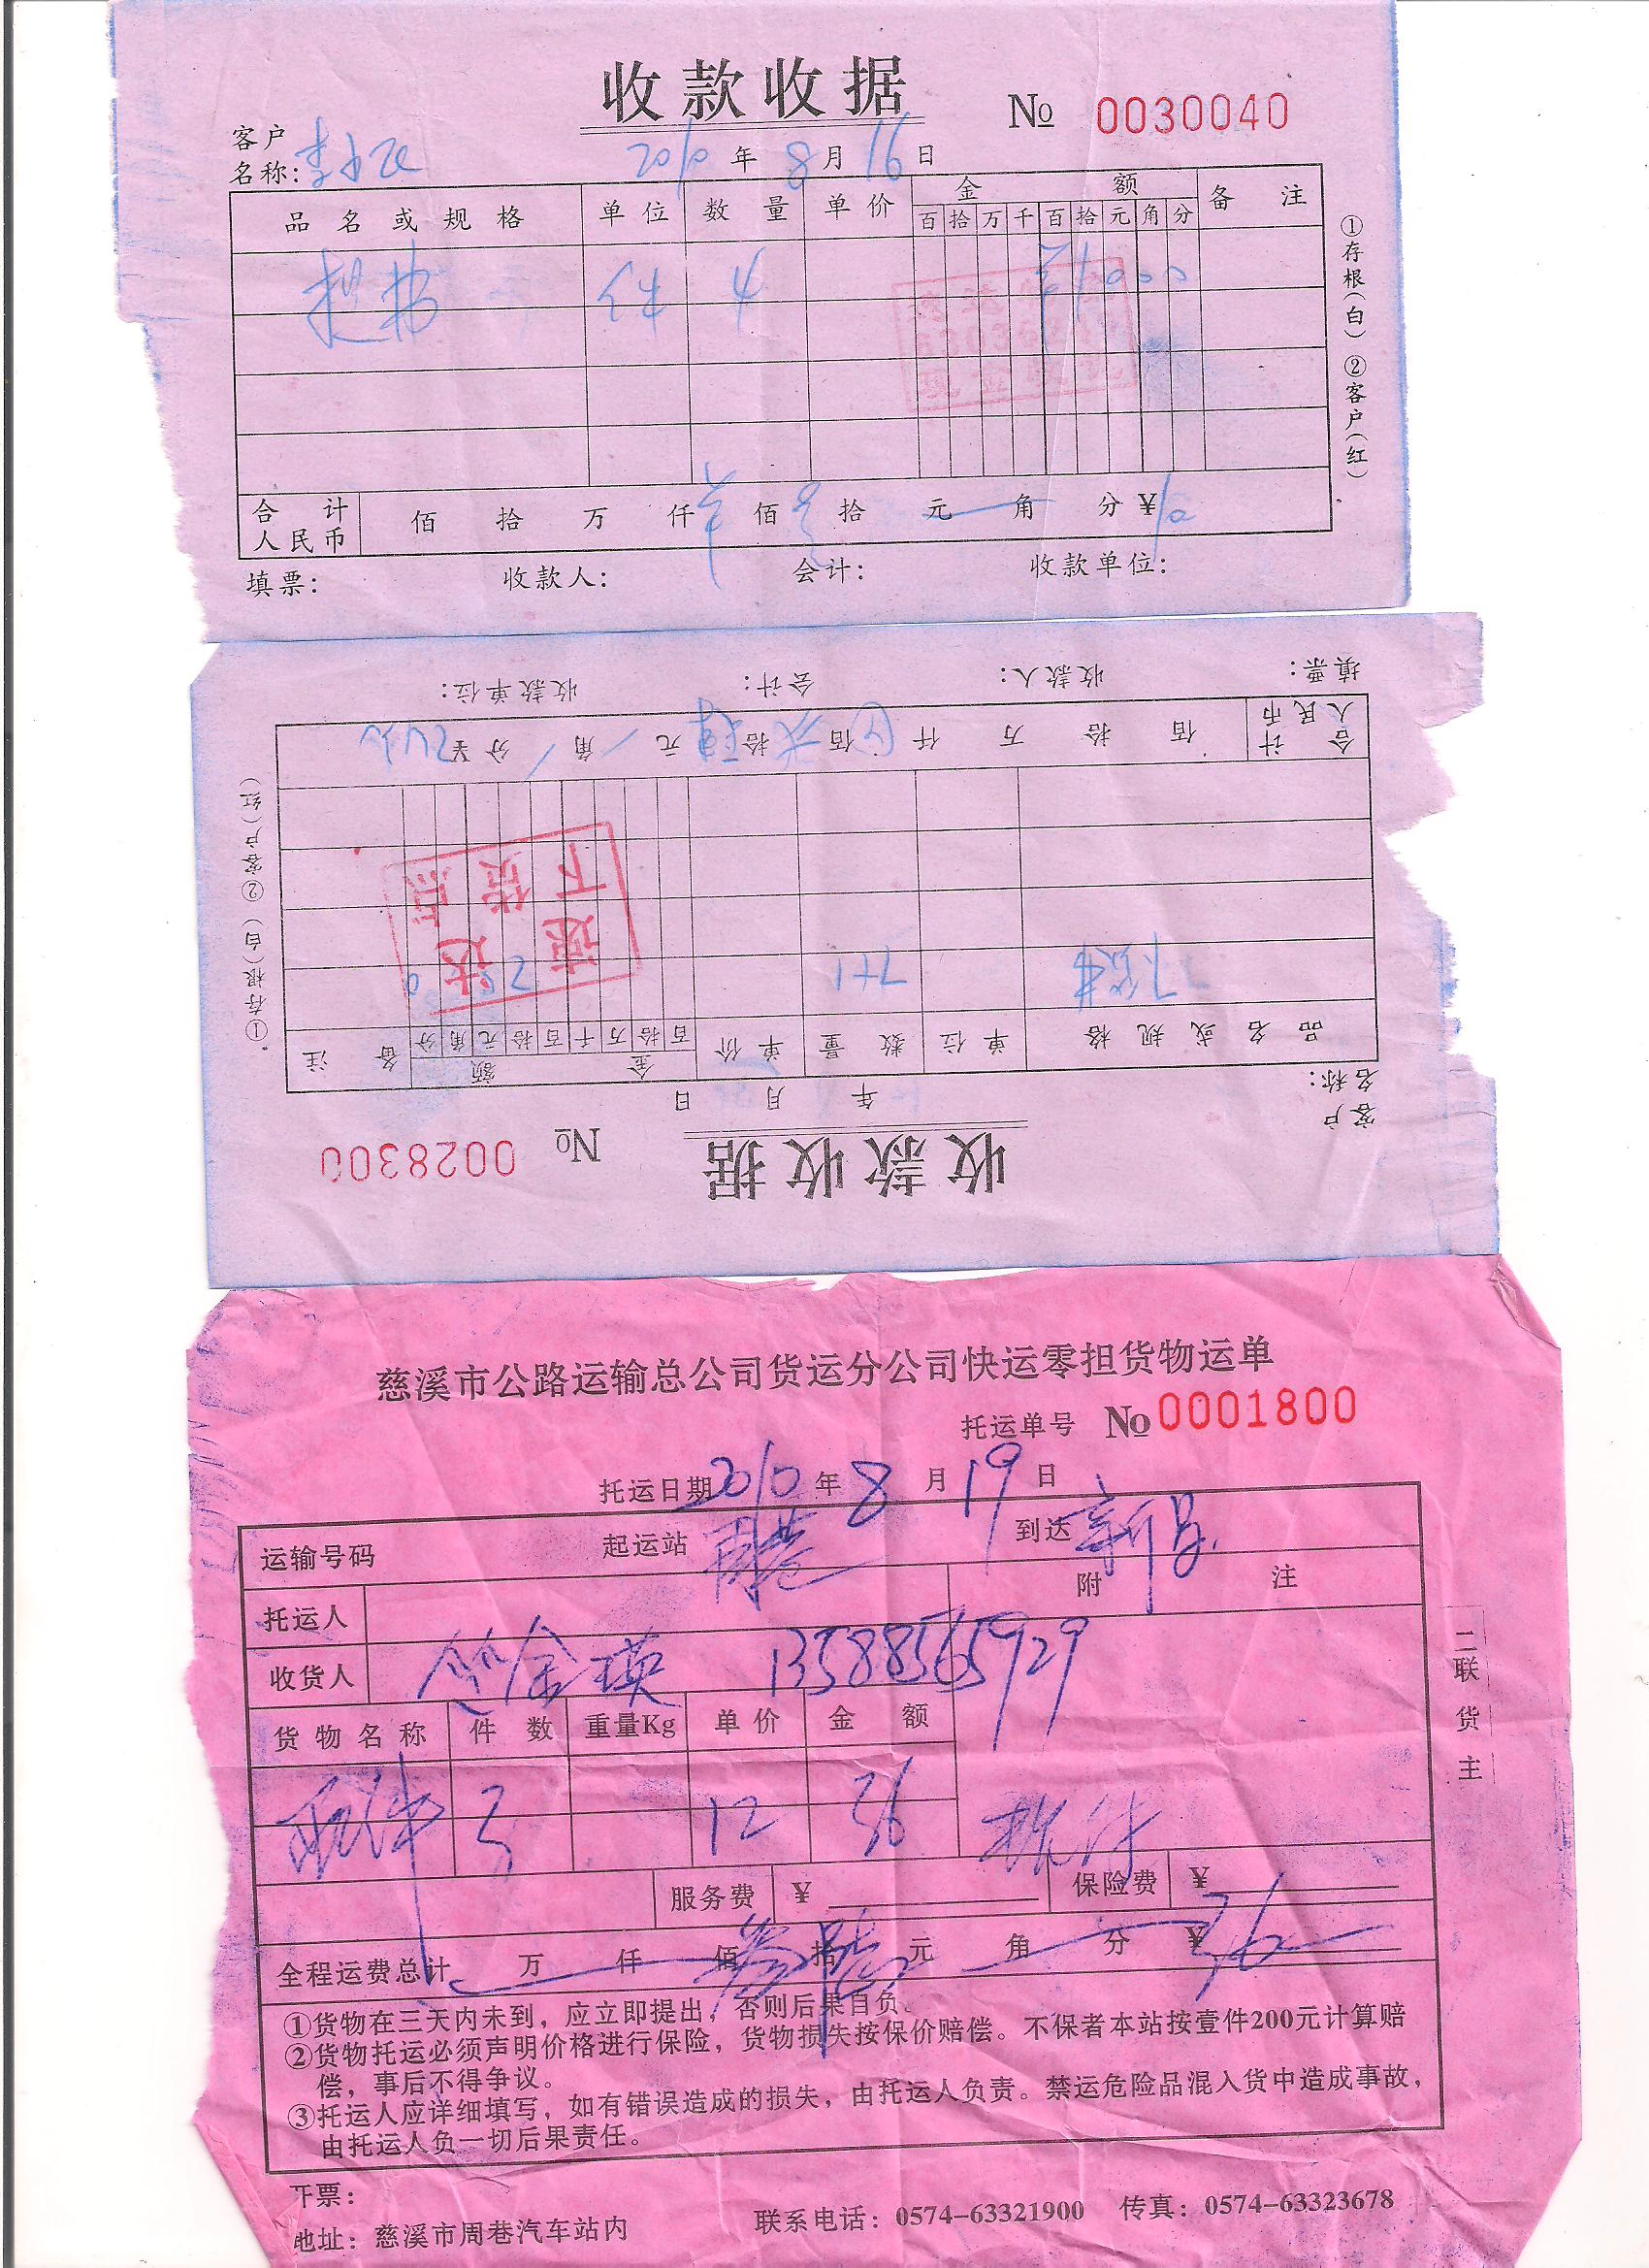 收款收据
№ 0030040
客户
名称:
2010年8月16日
品名或规格 单位 数量 单价 金额 备注
百拾万千百拾元角分
件 4
合计
人民币 佰 拾 万 仟 佰 拾 元 角 分 ¥
填票: 收款人: 会计: 收款单位:
①存根(白) ②客户(红)
收款收据
№ 0028300
客户
名称:
年 月 日
品名或规格 单位 数量 单价 金额 备注
百拾万千百拾元角分
下货费 7+1
速达
下货点
合计
人民币 佰 拾 万 仟 佰 拾 元 角 分 ¥
填票: 收款人: 会计: 收款单位:
①存根(白) ②客户(红)
慈溪市公路运输总公司货运分公司快运零担货物运单
托运单号 №0001800
托运日期2010年8月19日
运输号码 起运站 周巷 到达 新昌
托运人 附注
收货人 金瑛 13588565929
货物名称 件数 重量Kg 单价 金额
配件 3 12 36
服务费 ¥ 保险费 ¥
全程运费总计 万 仟 佰 叁拾陆元 角 分 ¥36
①货物在三天内未到，应立即提出，否则后果自负。
②货物托运必须声明价格进行保险，货物损失按保价赔偿。不保者本站按壹件200元计算赔
偿，事后不得争议。
③托运人应详细填写，如有错误造成的损失，由托运人负责。禁运危险品混入货中造成事故，
由托运人负一切后果责任。
二联货主
开票：
地址：慈溪市周巷汽车站内 联系电话：0574-63321900 传真：0574-63323678